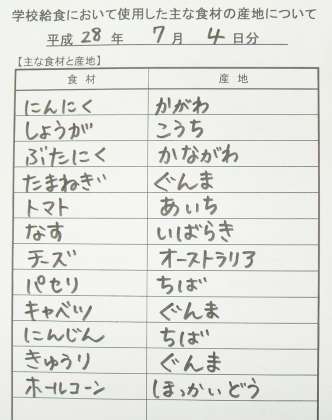 学校給食において使用した主な食材の産地について
平成 28 年 7 月 4 日分
【主な食材と産地】
食材 産地
にんにく かがわ
しょうが こうち
ぶたにく かながわ
たまねぎ ぐんま
トマト あいち
なす いばらき
チーズ オーストラリア
パセリ ちば
キャベツ ぐんま
にんじん ちば
きゅうり ぐんま
ホールコーン ほっかいどう